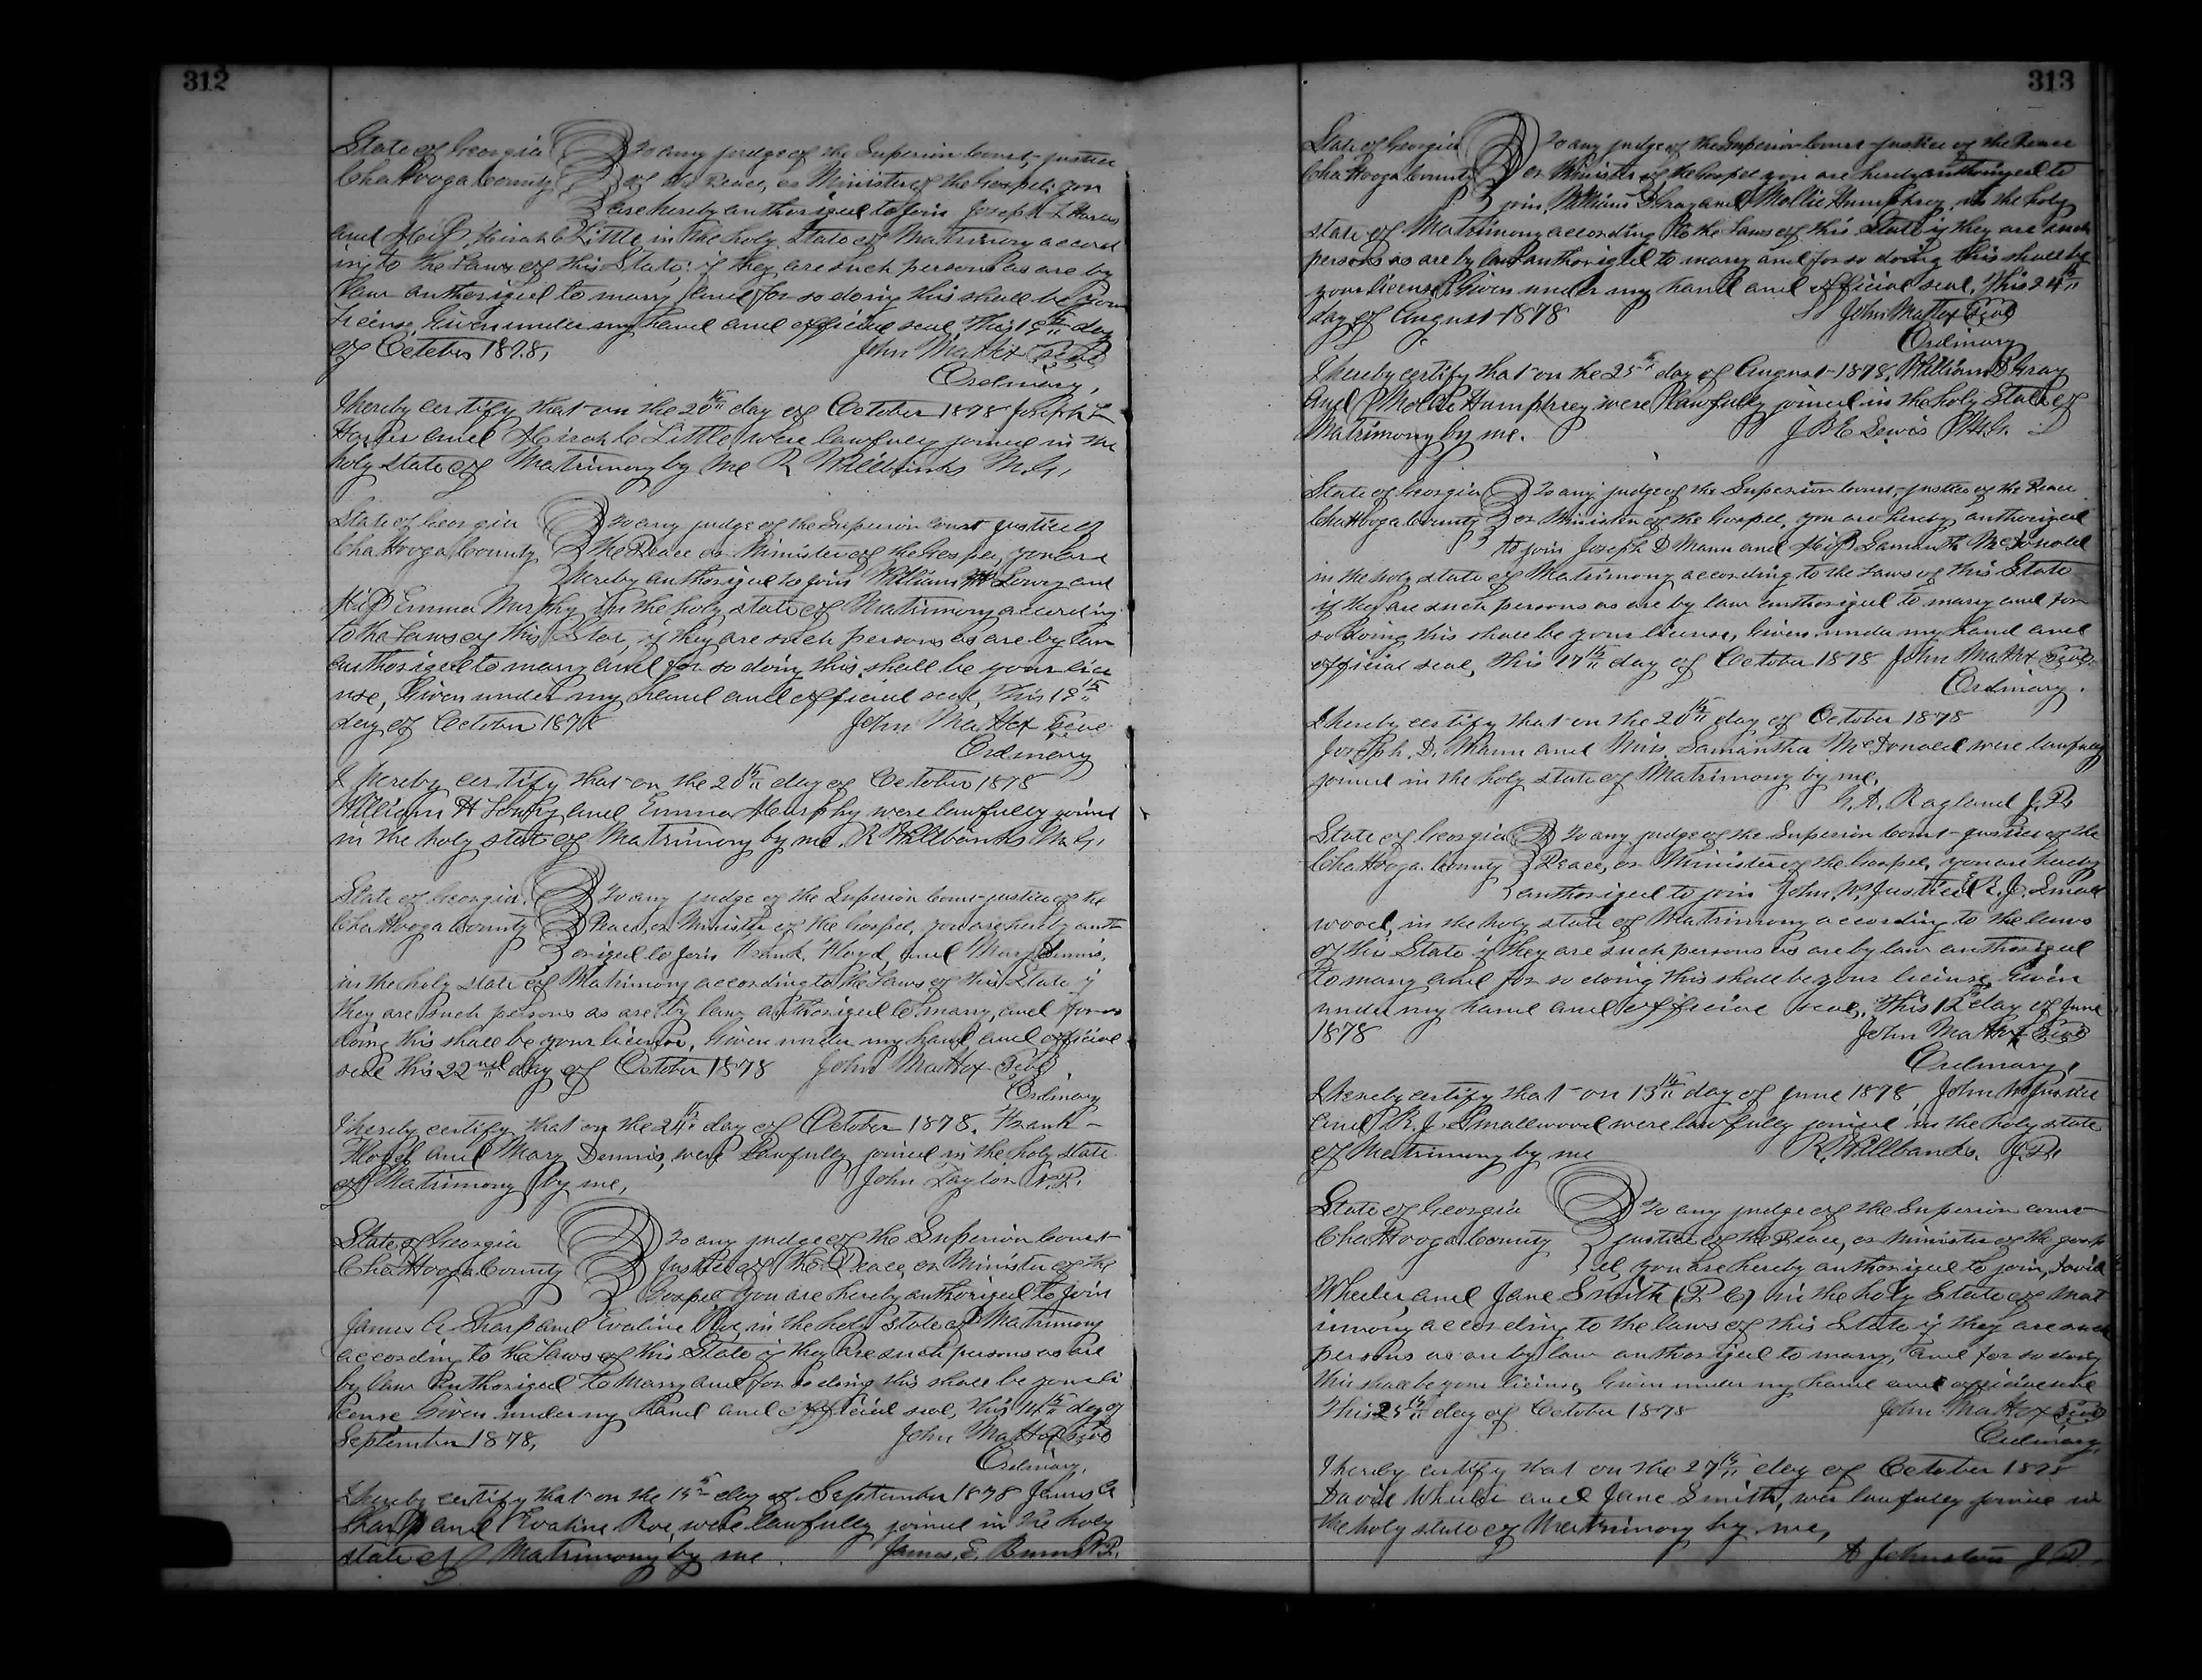 312
State of Georgia To any judge of the Superior Court, justice
Chattooga County of the Peace, or Minister of the Gospel; you
are hereby authorized to join Joseph L
and Miss C Little in the holy state of Matrimony accord
ing to the Laws of this State: if they are such persons as are by
law authorized to marry and for so doing this shall be your
License, Given under my hand and official seal, This 19th day
of October 1878, John Mattox Seal
Ordinary,
I hereby certify that on the 20th day of October 1878 Joseph L
and C Little were lawfully joined in the
holy state of Matrimony by me R Willbanks M.G,
State of Georgia To any judge of the Superior Court justice of
Chattooga County the Peace or Minister of the Gospel, you are
hereby authorized to join William H Lowry and
Miss Emma Murphy in the holy state of Matrimony according
to the Laws of this State, if they are such persons as are by law
authorized to marry and for so doing this shall be your lice
nse, Given under my hand and official seal, This 19th
day of October 1878 John Mattox Seal
Ordinary
I hereby certify that on the 20th day of October 1878
William H Lowry and Emma Murphy were lawfully joined
in the holy state of Matrimony by me R Willbanks M.G,
State of Georgia, To any judge of the Superior Court justice of the
Chattooga County Peace, or Minister of the Gospel, you are hereby auth
orized to join Frank Floyd, and Mary Dennis,
in the holy state of Matrimony according to the Laws of this State if
they are such persons as are by law authorized to marry, and for so
doing this shall be your license, Given under my hand and official
seal this 22nd day of October 1878 John Mattox Seal
Ordinary
I hereby certify that on the 24th day of October 1878. Frank
Floyd and Mary Dennis, were lawfully joined in the holy state
of Matrimony by me, John Taylor N.P.
State of Georgia To any judge of the Superior Court
Chattooga County Justice of the Peace or Minister of the
Gospel you are hereby authorized to join
James A Sharp and Evaline Roe, in the holy state of Matrimony
according to the Laws of this State if they are such persons as are
by law authorized to marry and for so doing this shall be your li
cense Given under my hand and official seal, this 14th day of
September 1878, John Mattox Seal
Ordinary,
I hereby certify that on the 15th day of September 1878 James A
Sharp and Evaline Roe, were lawfully joined in the holy
state of Matrimony by me. James E. N.P.
313
State of Georgia To any judge of the Superior Court justice of the Peace
Chattooga County or Minister of the Gospel you are hereby authorized to
join, William B Gray and Mollie Humphrey in the holy
state of Matrimony according to the Laws of this State if they are such
persons as are by law authorized to marry and for so doing this shall be
your license Given under my hand and official seal, This 24th
day of August 1878 John Mattox Seal
Ordinary
I hereby certify that on the 25th day of August 1878, William B Gray
and Mollie Humphrey were lawfully joined in the holy State of
Matrimony by me. J B E Lewis M.G.
State of Georgia To any judge of the Superior Court, justice of the Peace
Chattooga County or Minister of the Gospel, you are hereby authorized
to join Joseph D Mann and Miss Samantha McDonald
in the holy state of Matrimony according to the Laws of this State
if they are such persons as are by law authorized to marry and for
so doing this shall be your license, Given under my hand and
official seal, this 17th day of October 1878 John Mattox Seal
Ordinary.
I hereby certify that on the 20th day of October 1878
Joseph. D. Mann and Miss Samantha McDonald were lawfully
joined in the holy state of Matrimony by me.
G. A. Ragland J.P.
State of Georgia To any judge of the Superior Court justice of the
Chattooga County Peace, or Minister of the Gospel, you are hereby
authorized to join John W. Justice & R. J. Small
wood, in the holy state of Matrimony according to the laws
of this State if they are such persons as are by law authorized
to marry and for so doing this shall be your license, Given
under my hand and official seal, this 12th day of June
1878 John Mattox Seal
Ordinary,
I hereby certify that on 13th day of June 1878, John W Justice
and R. J. Smallwood were lawfully joined in the holy state
of Matrimony by me R. Willbanks. J.P.
State of Georgia To any judge of the Superior court
Chattooga County justice of the Peace, or Minister of the gosp
el, you are hereby authorized to join, David
Wheeler, and Jane Smith (P C) in the holy State of Mat
rimony according to the laws of this State if they are such
persons as are by law authorized to marry, and for so doing
this shall be your license, Given under my hand and official seal
This 25th day of October 1878 John Mattox Seal
Ordinary,
I hereby certify that on the 27th day of October 1878
David Wheeler and Jane Smith, was lawfully joined in
the holy state of Matrimony by me,
A Johnston J.P.